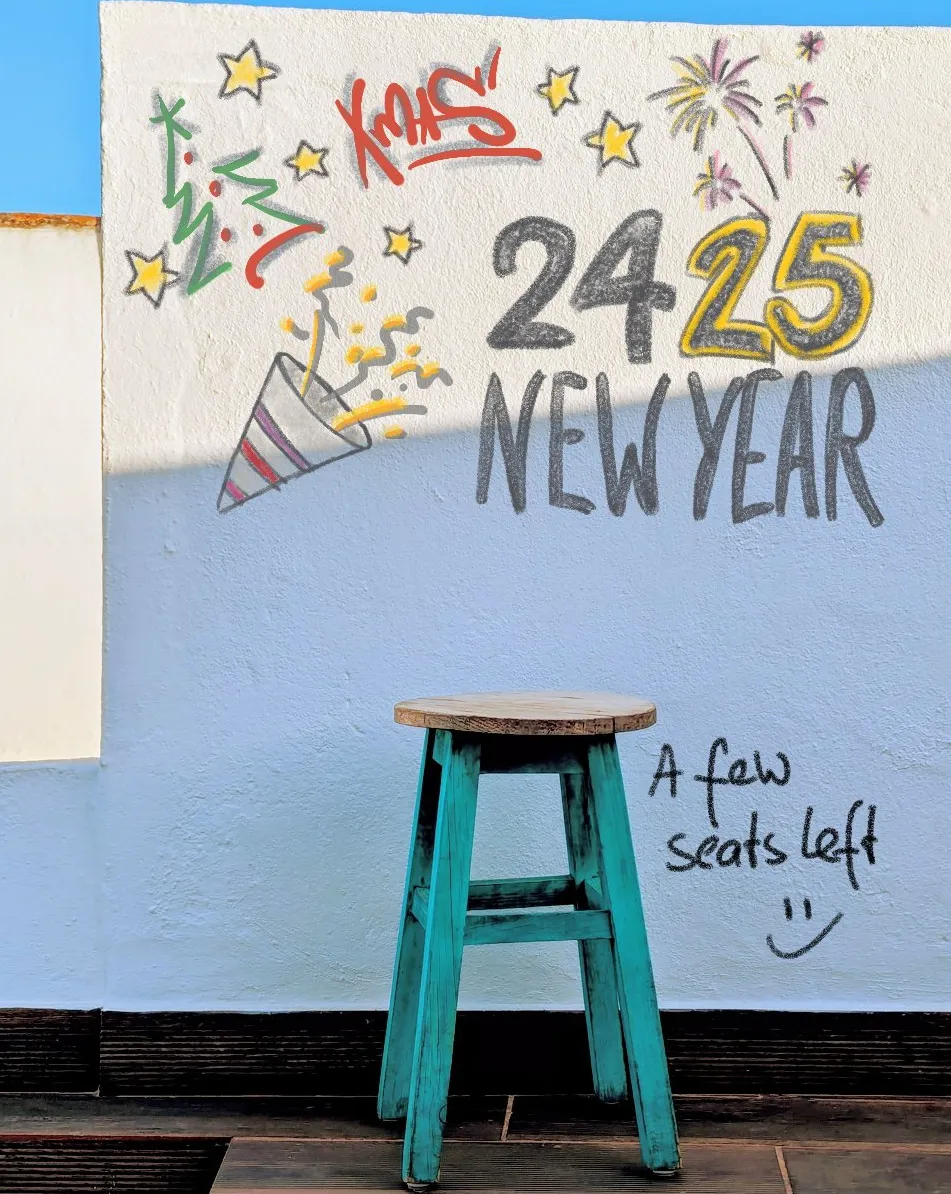 XMAS
24 25
NEW YEAR
A few
seats left